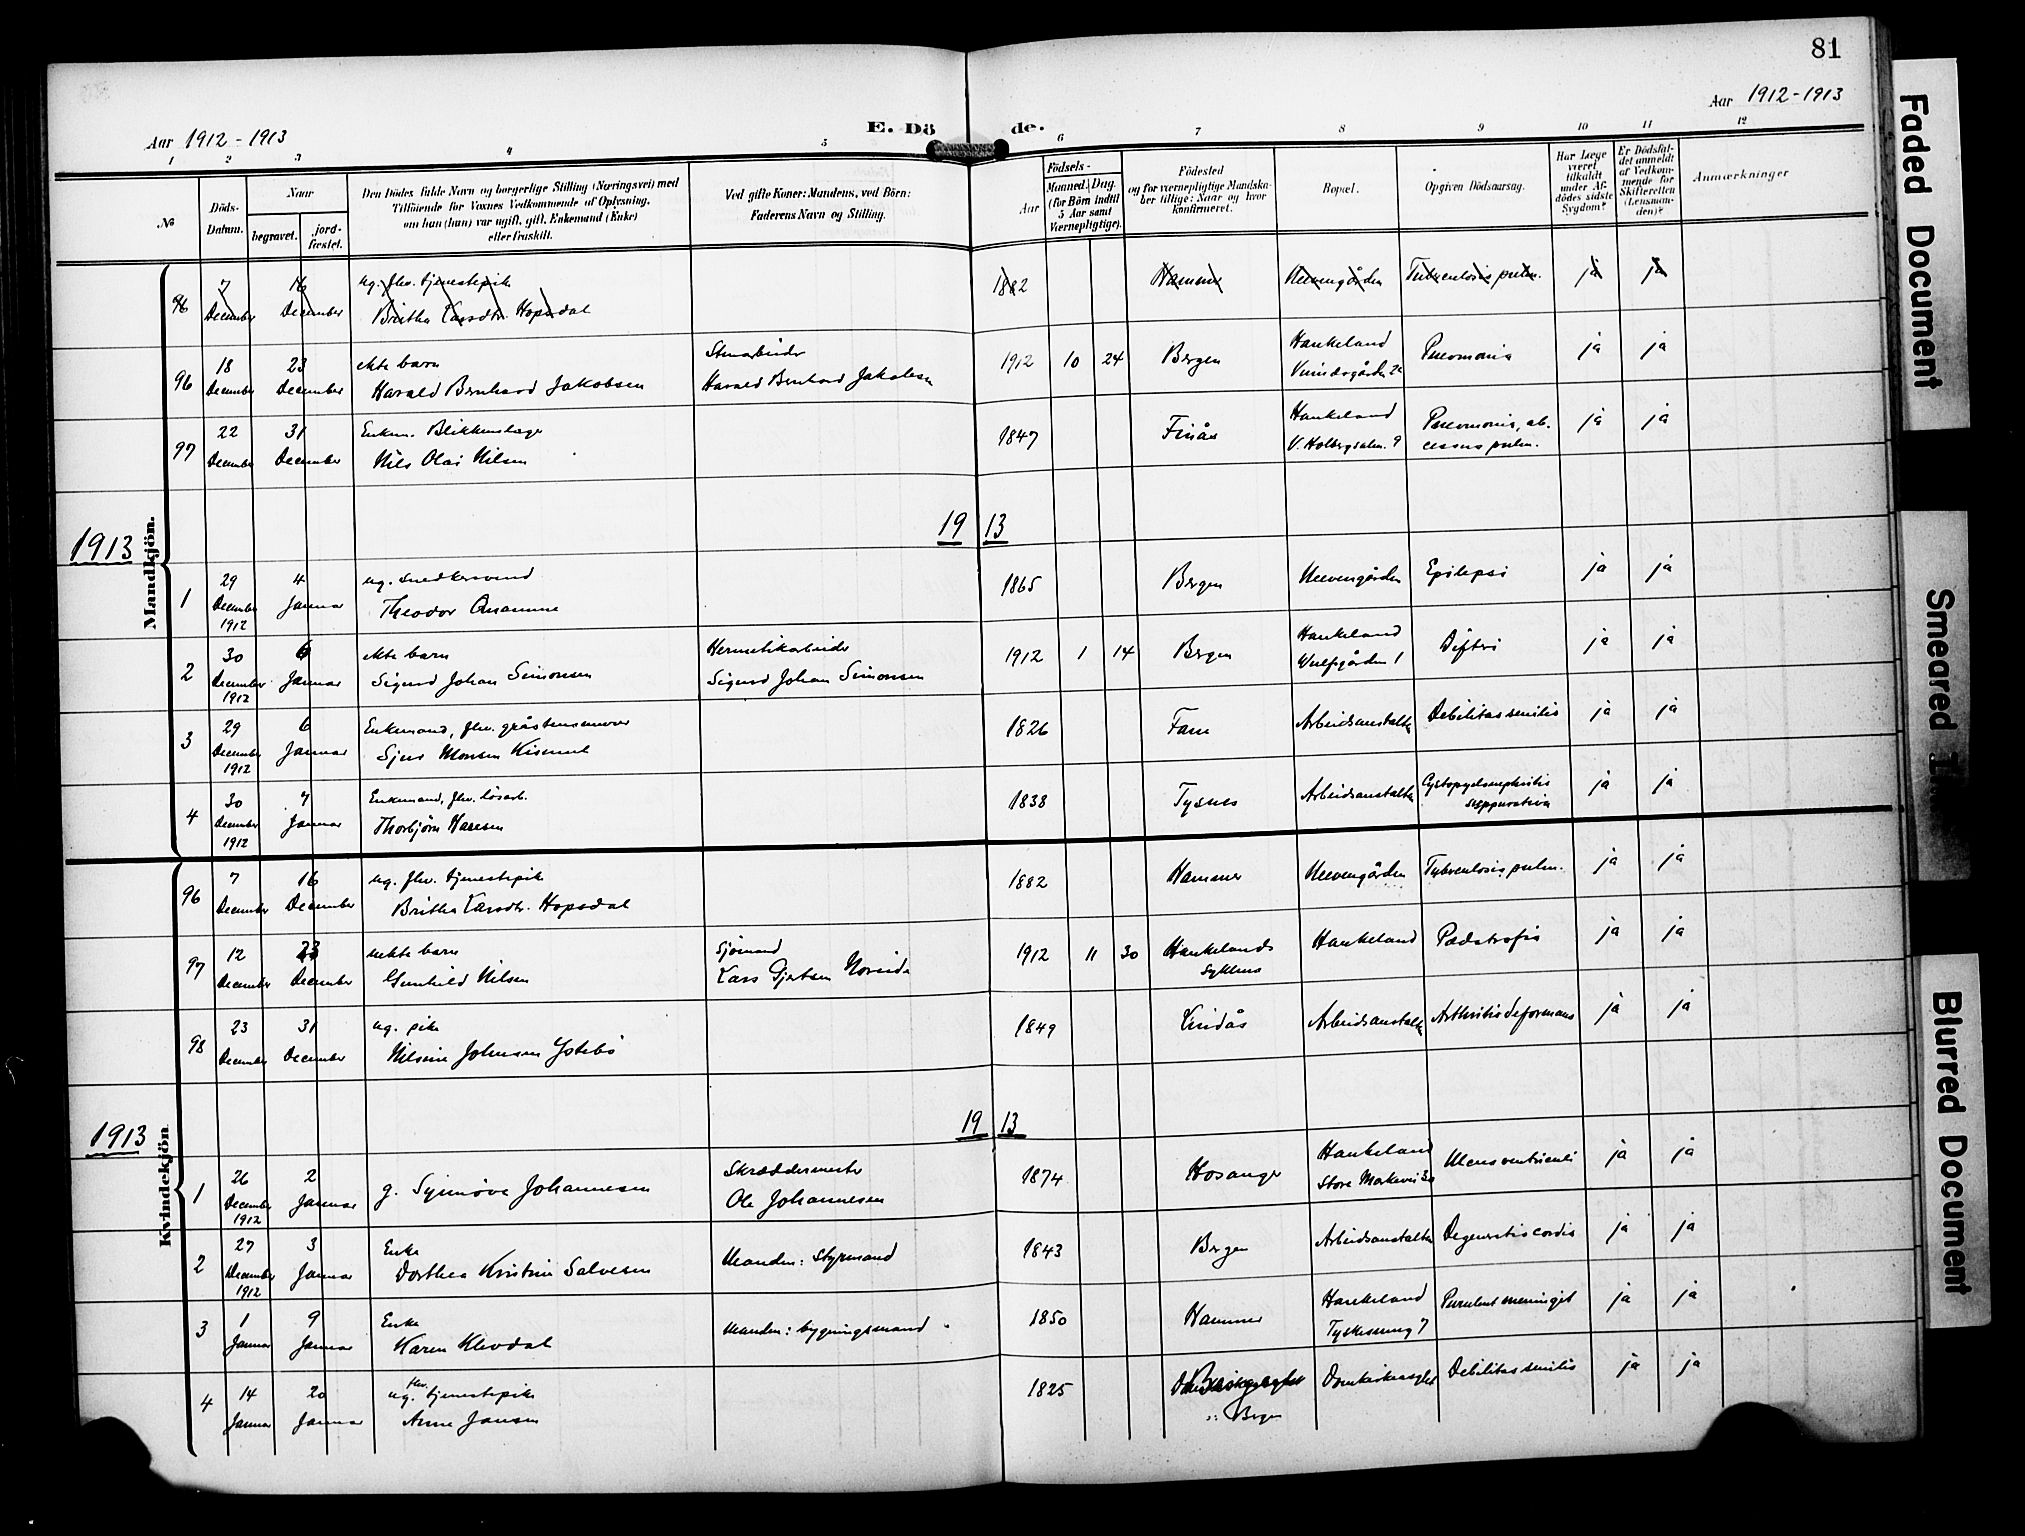 81
Aar 1912-1913
Aar 1912-1913
E. Dö de.
1 2 3 4 5 6 7 8 9 10 11 12
№
Döds-
Datum.
Naar
begravet.
jord-
fæstet.
Den Dödes fulde Navn og borgerlige Stilling (Næringsvei) med
Tilföiende for Voxnes Vedkommende af Oplysning,
om han (hun) var ugift, gift, Enkemand (Enke)
eller fraskilt.
Ved gifte Koner: Mandens, ved Börn:
Faderens Navn og Stilling.
Aar
Födsels-
Maaned. Dag.
(for Börn indtil
5 Aar samt
Værnepligtige).
Födested
og for værnepligtige Mandska-
ber tillige: Naar og hvor
konfirmeret.
Bopæl.
Opgiven Dödsaarsag.
Har Læge
været
tilkaldt
under Af-
dödes sidste
Sygdom?
Er Dödsfal-
det anmeldt
af Vedkom-
mende for
Skifteretten
(Lensman-
den)?
Anmærkninger
Mandkjön.
96 7 December 16 December ug. fhv. tjenestepike 1882 Hammer Neevengården Tuberculosis pulm. ja ja
Britha Larsdtr. Hopsdal
96 18 December 23 December ekte barn Stenarbeider 1912 10 24 Bergen Haukeland Pneomonia ja ja
Harald Bernhard Jakobsen Harald Bernhard Jakobsen
97 22 December 31 December Enkem. Blikkenslager 1847 Finås Haukeland Pneomonia, ab- ja ja
Nils Olai Nilsen V. Holbergsalm. 9 cessus pulm.
1913
19 13
1 29 December 1912 4 Januar ug. snedkersvend 1865 Bergen Neevengården Epilepsi ja ja
Theodor
2 30 December 1912 6 Januar ekte barn Hermetikarbeider 1912 1 14 Bergen Haukeland Difteri ja ja
Sigurd Johan Simonsen Sigurd Johan Simonsen Wulfsgården 1
3 29 December 1912 6 Januar Enkemand, fhv. gråstensmurer 1826 Fane Arbeidsanstalten Debilitas senilis ja ja
Sjur Monsen
4 30 December 1912 7 Januar Enkemand, fhv. løsarb. 1838 Tysnes Arbeidsanstalten Cystopyelonephritis ja ja
Thorbjørn Hansen suppurativa
Kvindekjön
96 7 December 16 December ug. fhv. tjenestepike 1882 Hammer Neevengården Tuberculosis pulm. ja ja
Britha Larsdtr. Hopsdal
97 12 December 23 December uekte barn Sjømand 1912 11 30 Haukelands Haukeland Pædatrofia ja ja
Gunhild Nilsen Lars Gjertsen sykehus
98 23 December 31 December ug. pike 1849 Lindås Arbeidsanstalten Arthritis deformans ja ja
Nilsine Johnsen Ystebø
1913
19 13
1 26 December 1912 2 Januar g. Synnøve Johannesen Skræddermester 1874 Hosanger Haukeland Ulcus ventriculi ja ja
Ole Johannesen Store Markevei
2 27 December 1912 3 Januar Enke Manden: Styrmand 1843 Bergen Arbeidsanstalten Degeneratio cordis ja ja
Dorthea Kristine Salvesen
3 1 Januar 9 Januar Enke Manden: bygningsmand 1850 Hammer Haukeland Purulent meningit ja ja
Karen Klevdal Tyskesmug 7
4 14 Januar 20 Januar ug. fhv. tjenestepike 1825 Domkirkeasylet Debilitas senilis ja ja
Anne Jansen Bergen
Faded Document
Smeared
Blurred Document